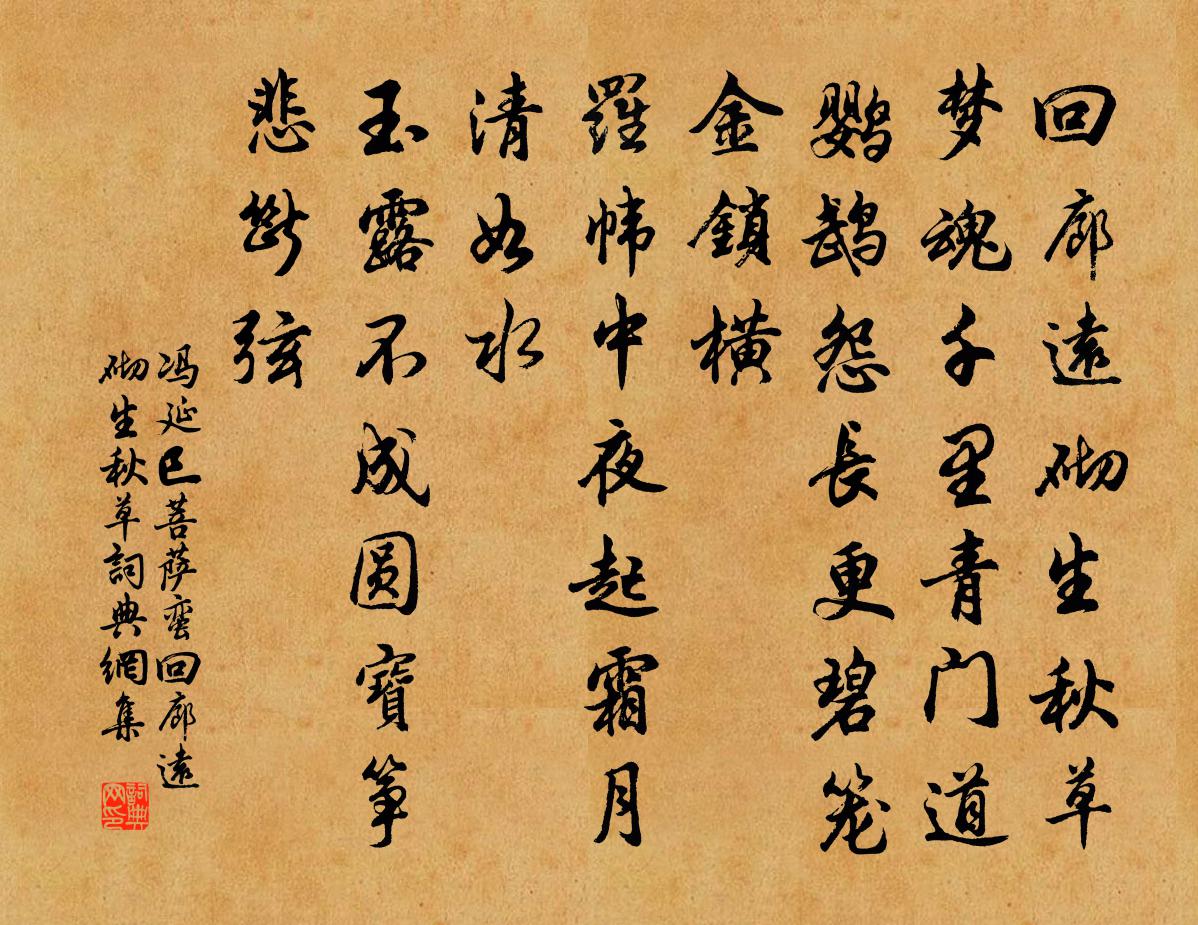 回廊遠砌生秋草
梦魂千里青门道
鹦鹉怨長更碧笼
金鎖横
羅帏中夜起霜月
清如水
玉露不成圆寶筝
悲斷弦
冯延巳菩萨蛮回廊遠
砌生秋草詞典網集
詞典
网印